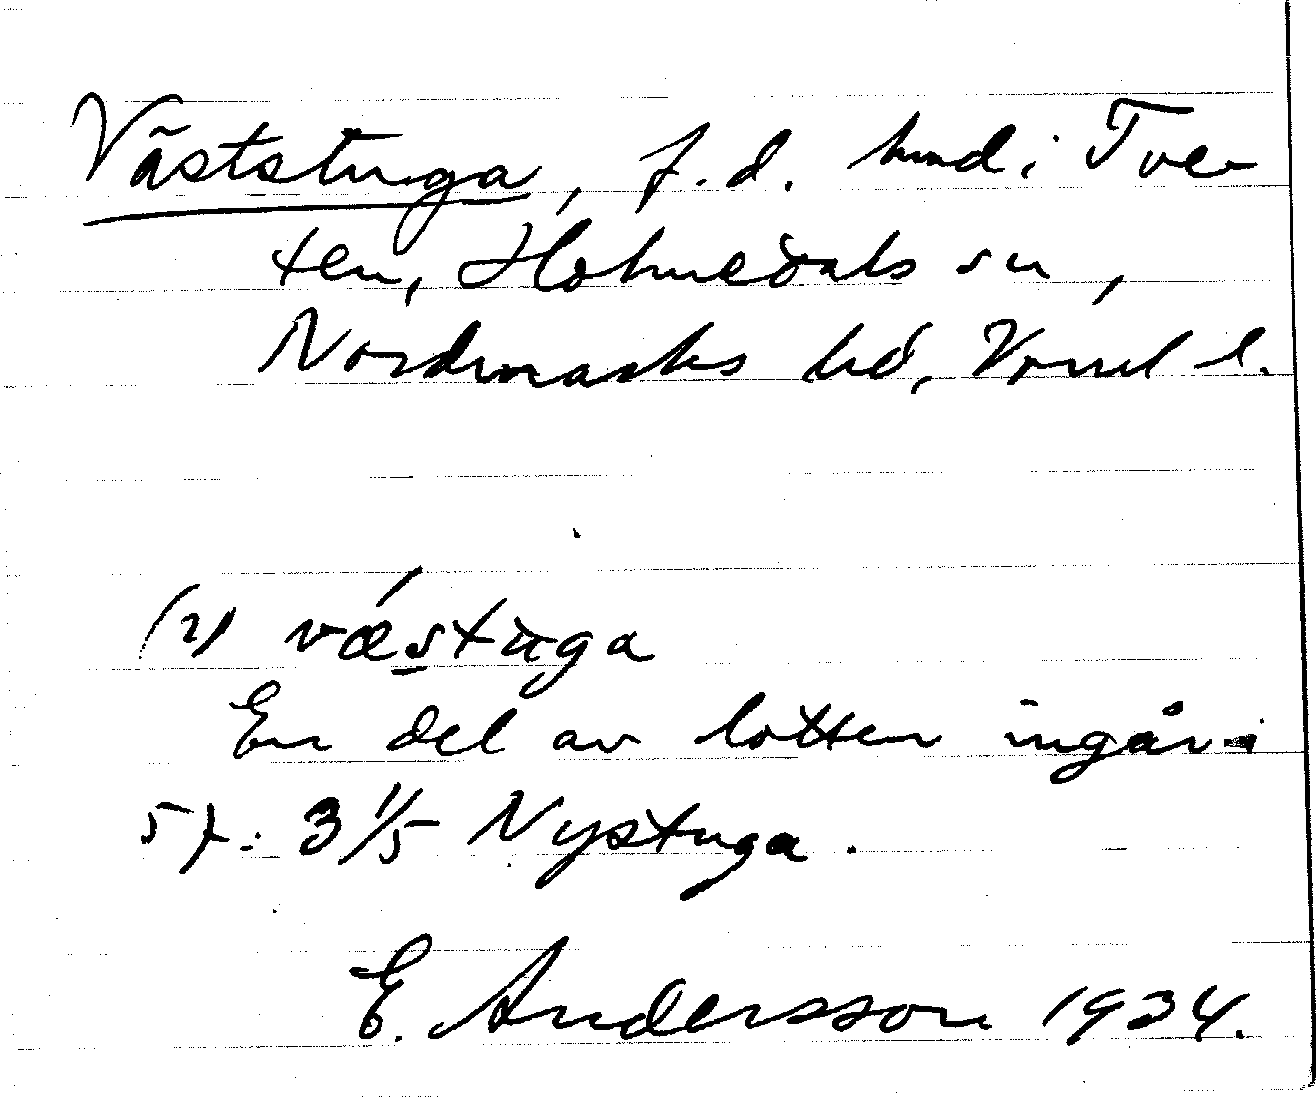 Väststuga, f.d. hmd i Tve-
ten, Holmedals sn,
Nordmarks hd, Vrml l.
(2) vǽstuga
En del av lotten ingår i
5): 3 1/5 Nystuga.
E. Andersson 1934.